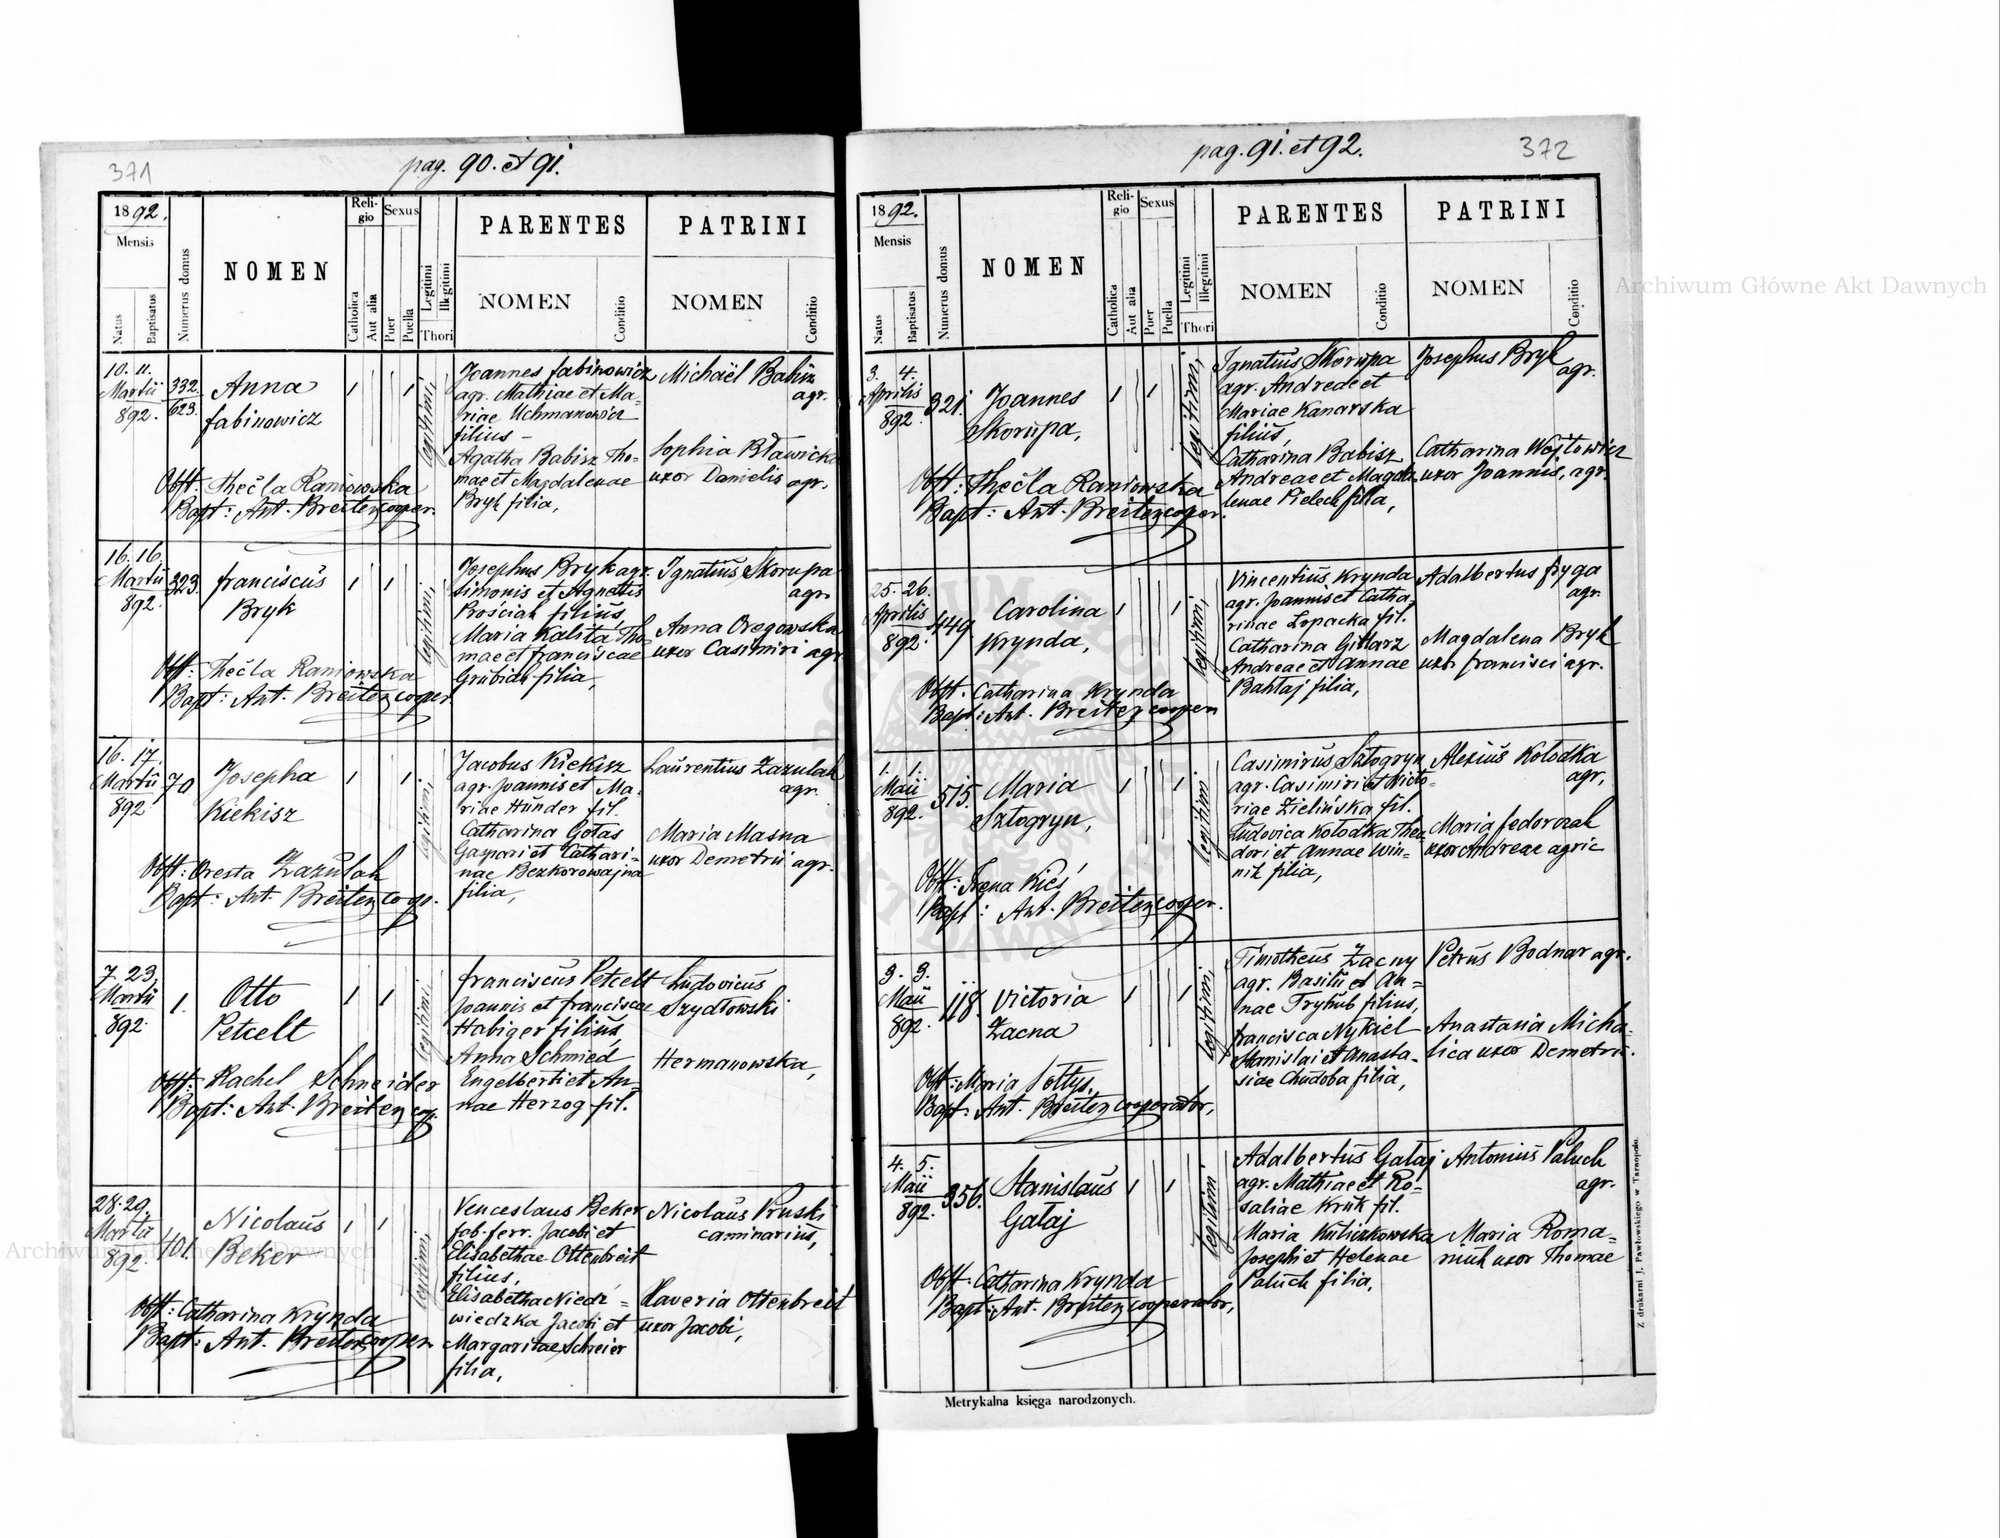 371
pag. 90. et 91.
1892.
Mensis
Natus
Baptisatus
Numerus domus
NOMEN
Religio
Catholica
Aut alia
Sexus
Puer
Puella
Legitimi
Illegitimi
Thori
PARENTES
NOMEN
Conditio
PATRINI
NOMEN
Conditio
10. 11.
Martii
892.
332.
623.
Anna
Fabinowicz
1
1
legitimi,
Joannes Fabinowicz
agr. Mathiae et Ma-
riae Uchmanowicz
filius –
Agatha Babisz Tho-
mae et Magdalenae
Bryk filia,
Michaël Babisz
agr.
Sophia Bławicka
uxor Danielis agr.
Obst: Thecla Raniowska
Bapt: Ant. Breiten, cooper.
16. 16.
Martii
892.
323.
Franciscus
Bryk
1
1
legitimi,
Josephus Bryk agr.
Simonis et Agnetis
Prościak filius,
Maria Kalita Tho-
mae et Franciscae
Grabida filia,
Ignatius Skorupa
agr.
Anna Oregowska
uxor Casimiri agr.
Obst: Thecla Raniowska
Bapt: Ant. Breiten, cooper.
16. 17.
Martii
892
70
Josepha
Kiekisz
1
1
legitimi,
Jacobus Kiekisz
agr. Joannis et Ma-
riae Hunder fil.
Catharina Gotas
Gaspari et Cathari-
nae Bezkorowajna
filia,
Laurentius Zazulak
agr.
Maria Masna
uxor Demetrii agr.
Obst: Oresta Zazulak
Bapt: Ant. Breiten, coop.
7. 23.
Martii
892.
1.
Otto
Petzelt
1
1
legitimi,
Franciscus Petzelt
Joannis et Franciscae
Habiger filius,
Anna Schmied
Engelberti et An-
nae Herzog fil.
Ludovicus
Szydłowski
Hermanowska,
Obst: Rachel Schneider
Bapt: Ant. Breiten, coop.
28. 29.
Martii
892.
401.
Nicolaus
Beker
1
1
legitimi,
Venceslaus Beker
fab. ferr. Jacobi et
Elisabethae Ottenbreit
filius,
Elisabetha Niedź-
wiedzka Jacobi et
Margaritae Schreier
filia,
Nicolaus Pruski
caminarius,
Xaveria Ottenbreit
uxor Jacobi,
Obst: Catharina Krynda
Bapt: Ant. Breiten, cooper
372
pag. 91. et 92.
1892.
Mensis
Natus
Baptisatus
Numerus domus
NOMEN
Religio
Catholica
Aut alia
Sexus
Puer
Puella
Legitimi
Illegitimi
Thori
PARENTES
NOMEN
Conditio
PATRINI
NOMEN
Conditio
3. 4.
Aprilis
892.
321.
Joannes
Skorupa,
1
1
legitimi,
Ignatius Skorupa
agr. Andreae et
Mariae Kanarska
filius,
Catharina Babisz
Andreae et Magda-
lenae Pielech filia,
Josephus Bryk
agr.
Catharina Wójtowicz
uxor Joannis, agr.
Obst: Thecla Raniowska
Bapt: Ant. Breiten, cooper.
25. 26.
Aprilis
892.
449.
Carolina
Krynda,
1
1
legitimi,
Vincentius Krynda
agr. Joannis et Catha-
rinae Łopacka fil.
Catharina Gitlarz
Andreae et Annae
Bahtaj filia,
Adalbertus Fryga
agr.
Magdalena Bryk
uxor Francisci agr.
Obst. Catharina Krynda
Bapt: Ant. Breiten, cooper
1. 1.
Maii
892.
515.
Maria
Sztogryn,
1
1
legitimi,
Casimirus Sztogryn
agr. Casimiri et Victo-
riae Zielińska fil.
Ludovica Kołodka Theo-
dori et Annae Win-
nik filia,
Alexius Kołodka
agr,
Maria Fedorczak
uxor Andreae agric
Obst: Irena Kieś
Bapt: Ant. Breiten, cooper.
3. 3.
Maii
892.
118.
Victoria
Zacna
1
1
legitimi,
Timotheus Zacny
agr. Basilii et An-
nae Tryhub filius,
Francisca Nykiel
Stanislai et Anasta-
siae Chudoba filia,
Petrus Bodnar agr.
Anastasia Micha-
lica uxor Demetrii.
Obst: Maria Sołtys,
Bapt: Ant. Breiten, cooperator,
4. 5.
Maii
892.
356.
Stanislaus
Gałaj
1
1
legitimi
Adalbertus Gałaj
agr. Mathiae et Ro-
saliae Kruk fil.
Maria Kuliczkowska
Josephi et Helenae
Paluch filia,
Antonius Paluch
agr.
Maria Roma-
niuk uxor Thomae
Obst: Catharina Krynda
Bapt: Ant. Breiten, cooperator,
Metrykalna księga narodzonych.
Z drukarni J. Pawłowskiego w Tarnopolu.
Archiwum Główne Akt Dawnych
Archiwum Główne Akt Dawnych